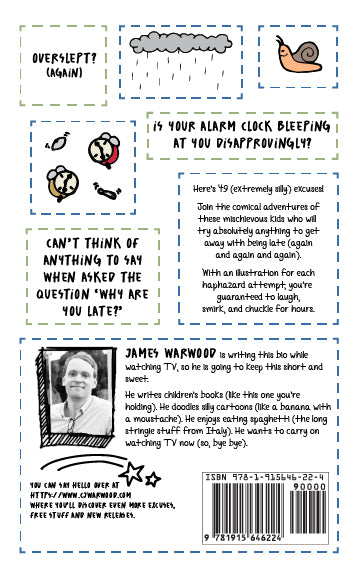 OVERSLEPT?
(AGAIN)
IS YOUR ALARM CLOCK BLEEPING
AT YOU DISAPPROVINGLY?
Here's 49 (extremely silly) excuses!
Join the comical adventures of
these mischievous kids who will
try absolutely anything to get
away with being late (again
and again and again).
With an illustration for each
haphazard attempt, you're
guaranteed to laugh,
smirk, and chuckle for hours.
CAN'T THINK OF
ANYTHING TO SAY
WHEN ASKED THE
QUESTION 'WHY ARE
YOU LATE?'
JAMES WARWOOD is writing this bio while
watching TV, so he is going to keep this short and
sweet.
He writes children's books (like this one you're
holding). He doodles silly cartoons (like a banana with
a moustache). He enjoys eating spaghetti (the long
stringle stuff from Italy). He wants to carry on
watching TV now (so, bye bye).
YOU CAN SAY HELLO OVER AT
HTTPS://WWW.CJWARWOOD.COM
WHERE YOU'LL DISCOVER EVEN MORE EXCUSES,
FREE STUFF AND NEW RELEASES.
ISBN 978-1-915646-22-4
90000
9 781915 646224